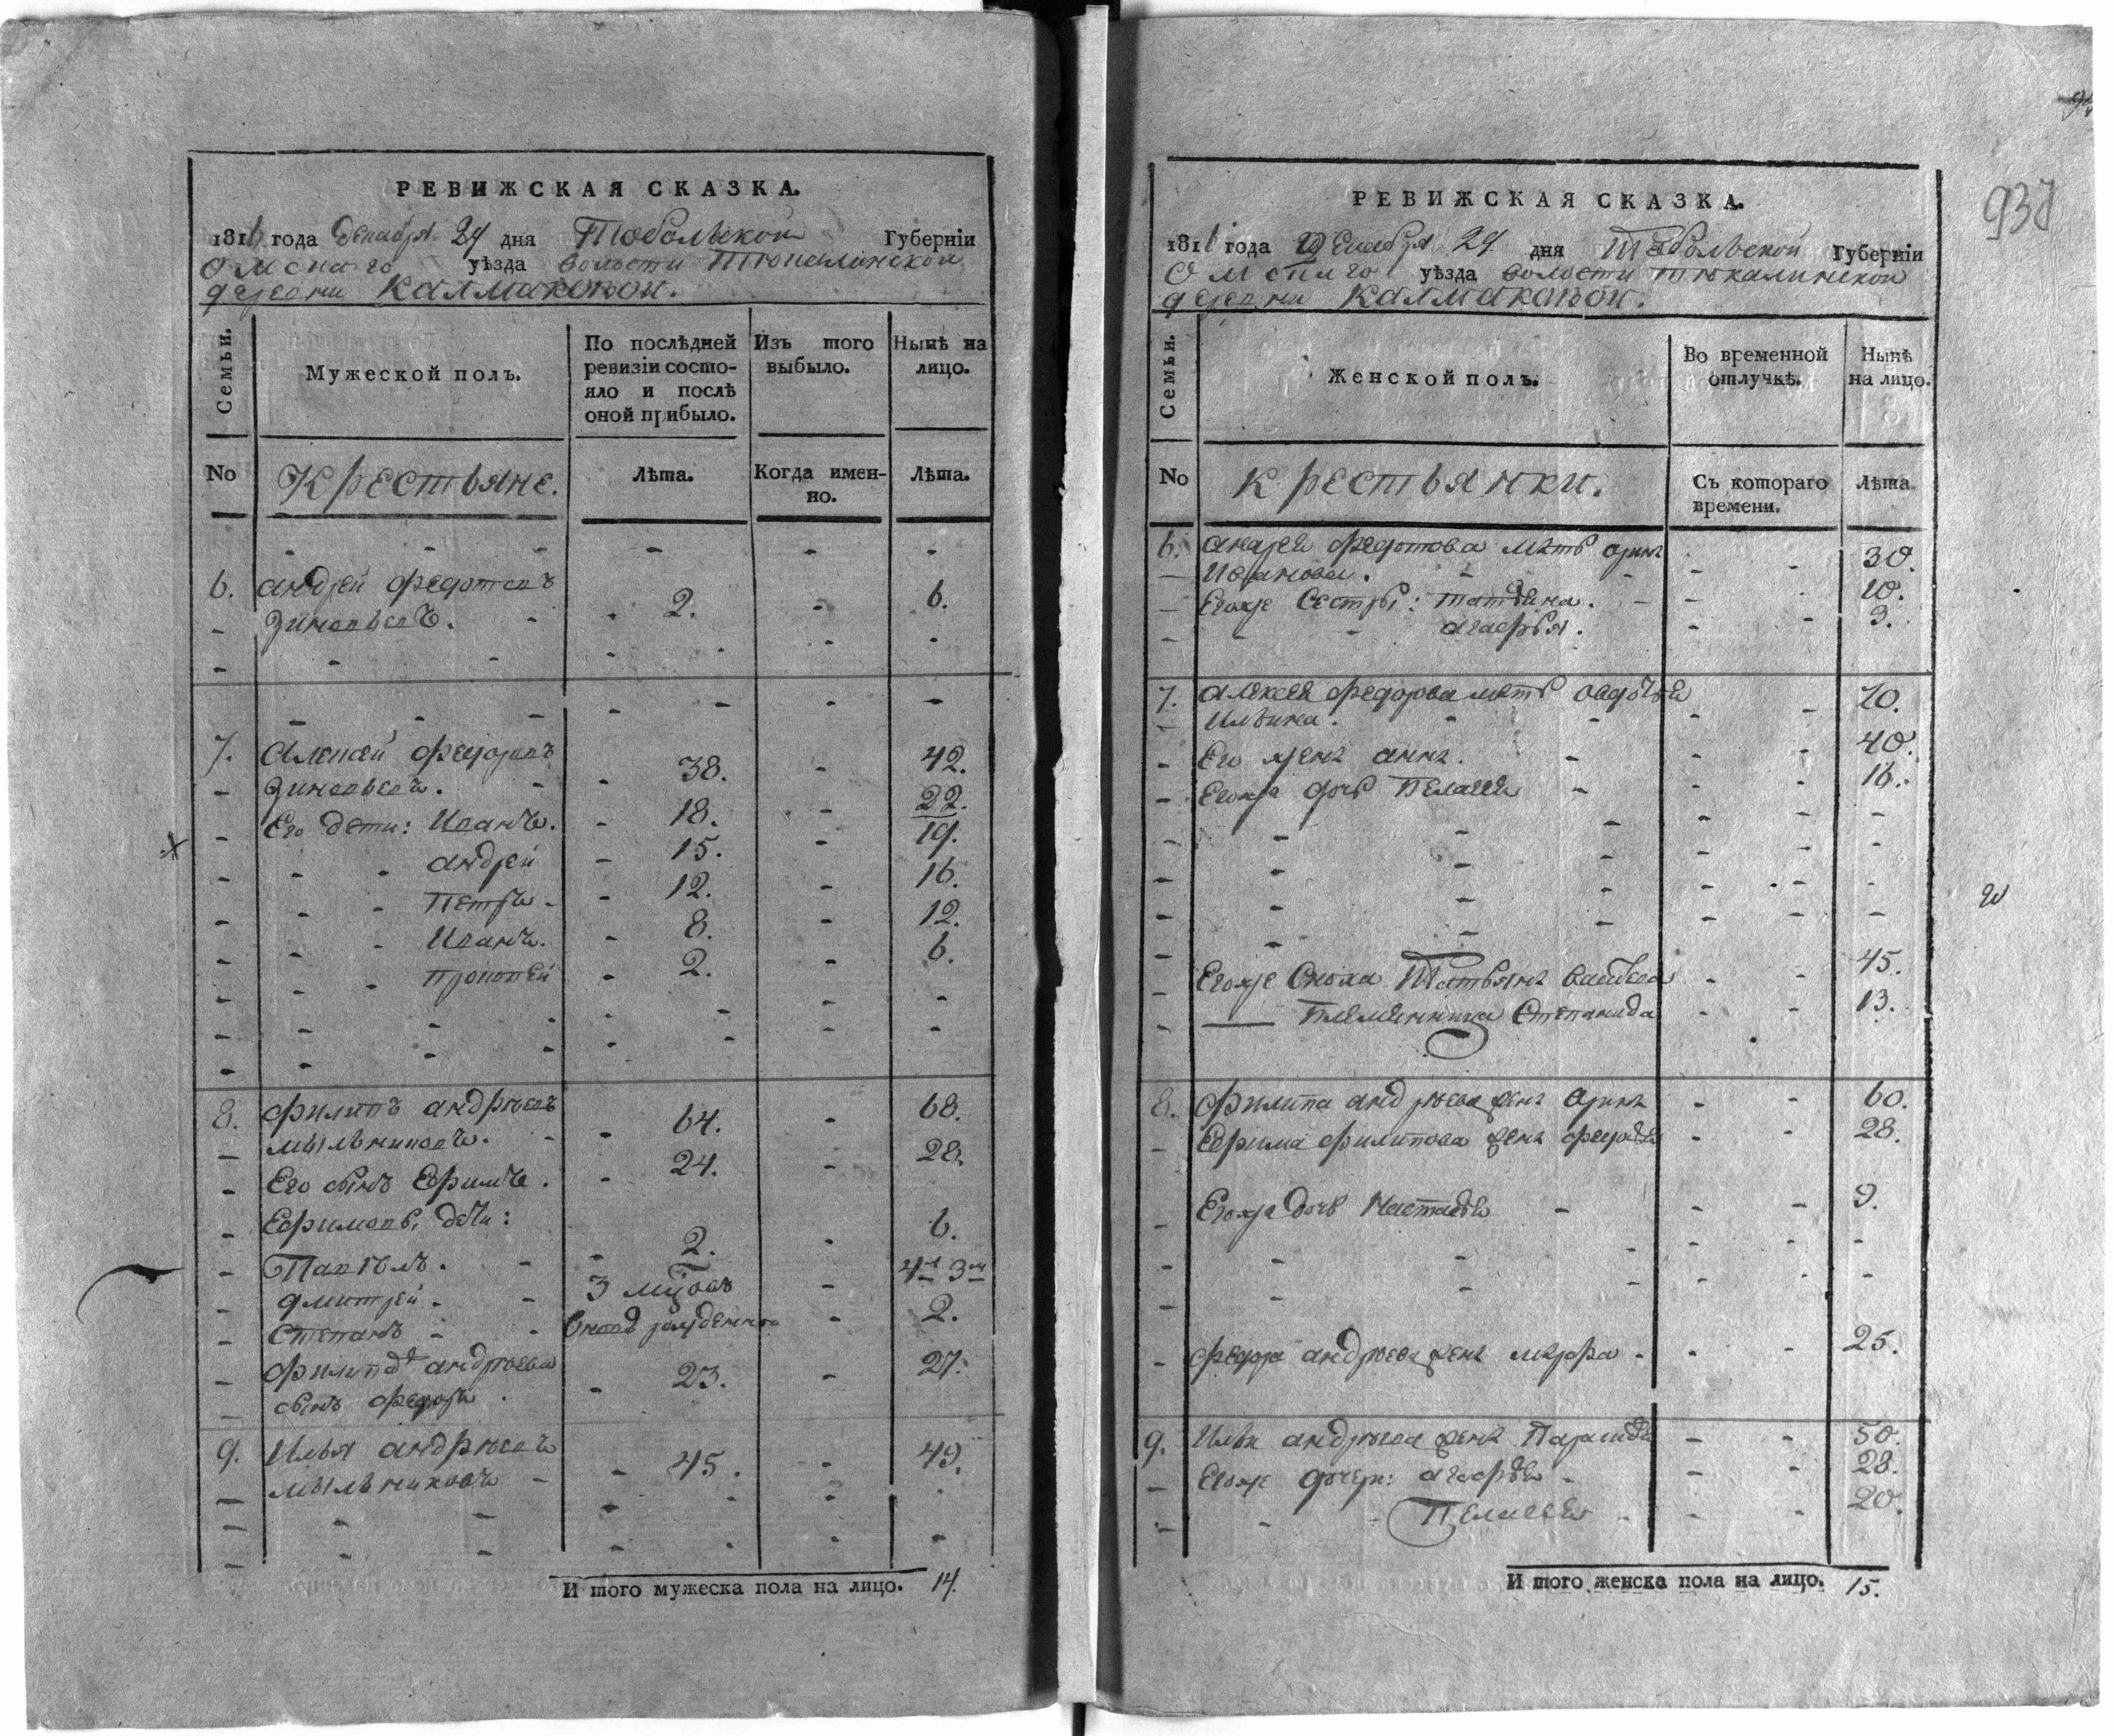 РЕВИЖСКАЯ СКАЗКА.
1816 года Декабря 29 дня Тобольской Губернїи
Омскаго уѣзда волости Тюкалинской
деревни Калмаковой.
Семьи.
Мужеской полъ.
По послѣдней ревизїи состо-
яло и послѣ
оной прибыло.
Изъ того
выбыло.
Нынѣ на
лицо.
No
Крестьяне.
Лѣта.
Когда имен-
но.
Лѣта.
6. андрей федотовъ
зиновьевъ. 2. 6.
7. Алексей федоровъ
зиновьевъ. 38. 42.
Его дети: Иванъ. 18. 22.
андрей 15. 19.
Петръ 12. 16.
Иванъ. 8. 12.
прокопей 2. 6.
8. филипъ андреевъ
мыльниковъ. 64. 68.
Его сынъ Ефимъ. 24. 28.
Ефимовы дети:
Павелъ. 2. 6.
дмитрей. 3
степанъ 2.
филипа андреева
сынъ федоръ 23. 27.
9. Илья андреевъ
мыльниковъ 45. 49.
И того мужеска пола на лицо. 14.
РЕВИЖСКАЯ СКАЗКА.
1816 года Декабря 29 дня Тобольской Губернїи
Омскаго уѣзда волости тюкалинской
деревни Калмаковой.
Семьи.
Женской полъ.
Во временной
отлучкѣ.
Нынѣ
на лицо.
No
крестьянки.
Съ котораго
времени.
Лѣта
6. андрея федотова мать
Иванова. 30.
Егоже Сестры: татьяна. 10.
агафья. 3.
7. алексея федорова мать авдотья
Ильина. 70.
Его жена анна. 40.
Егоже дочь Пелагея 16.
Егоже Сноха Татьяна 45.
Племянница Степанида 13.
8. филипа андреева жена 60.
Ефима филипова жена 28.
Егоже дочь Настасья 9.
федора андреева жена марфа 25.
9. Ильи андреева жена 50.
Егоже дочери: агафья 28.
Пелагея 20.
И того женска пола на лицо. 15.